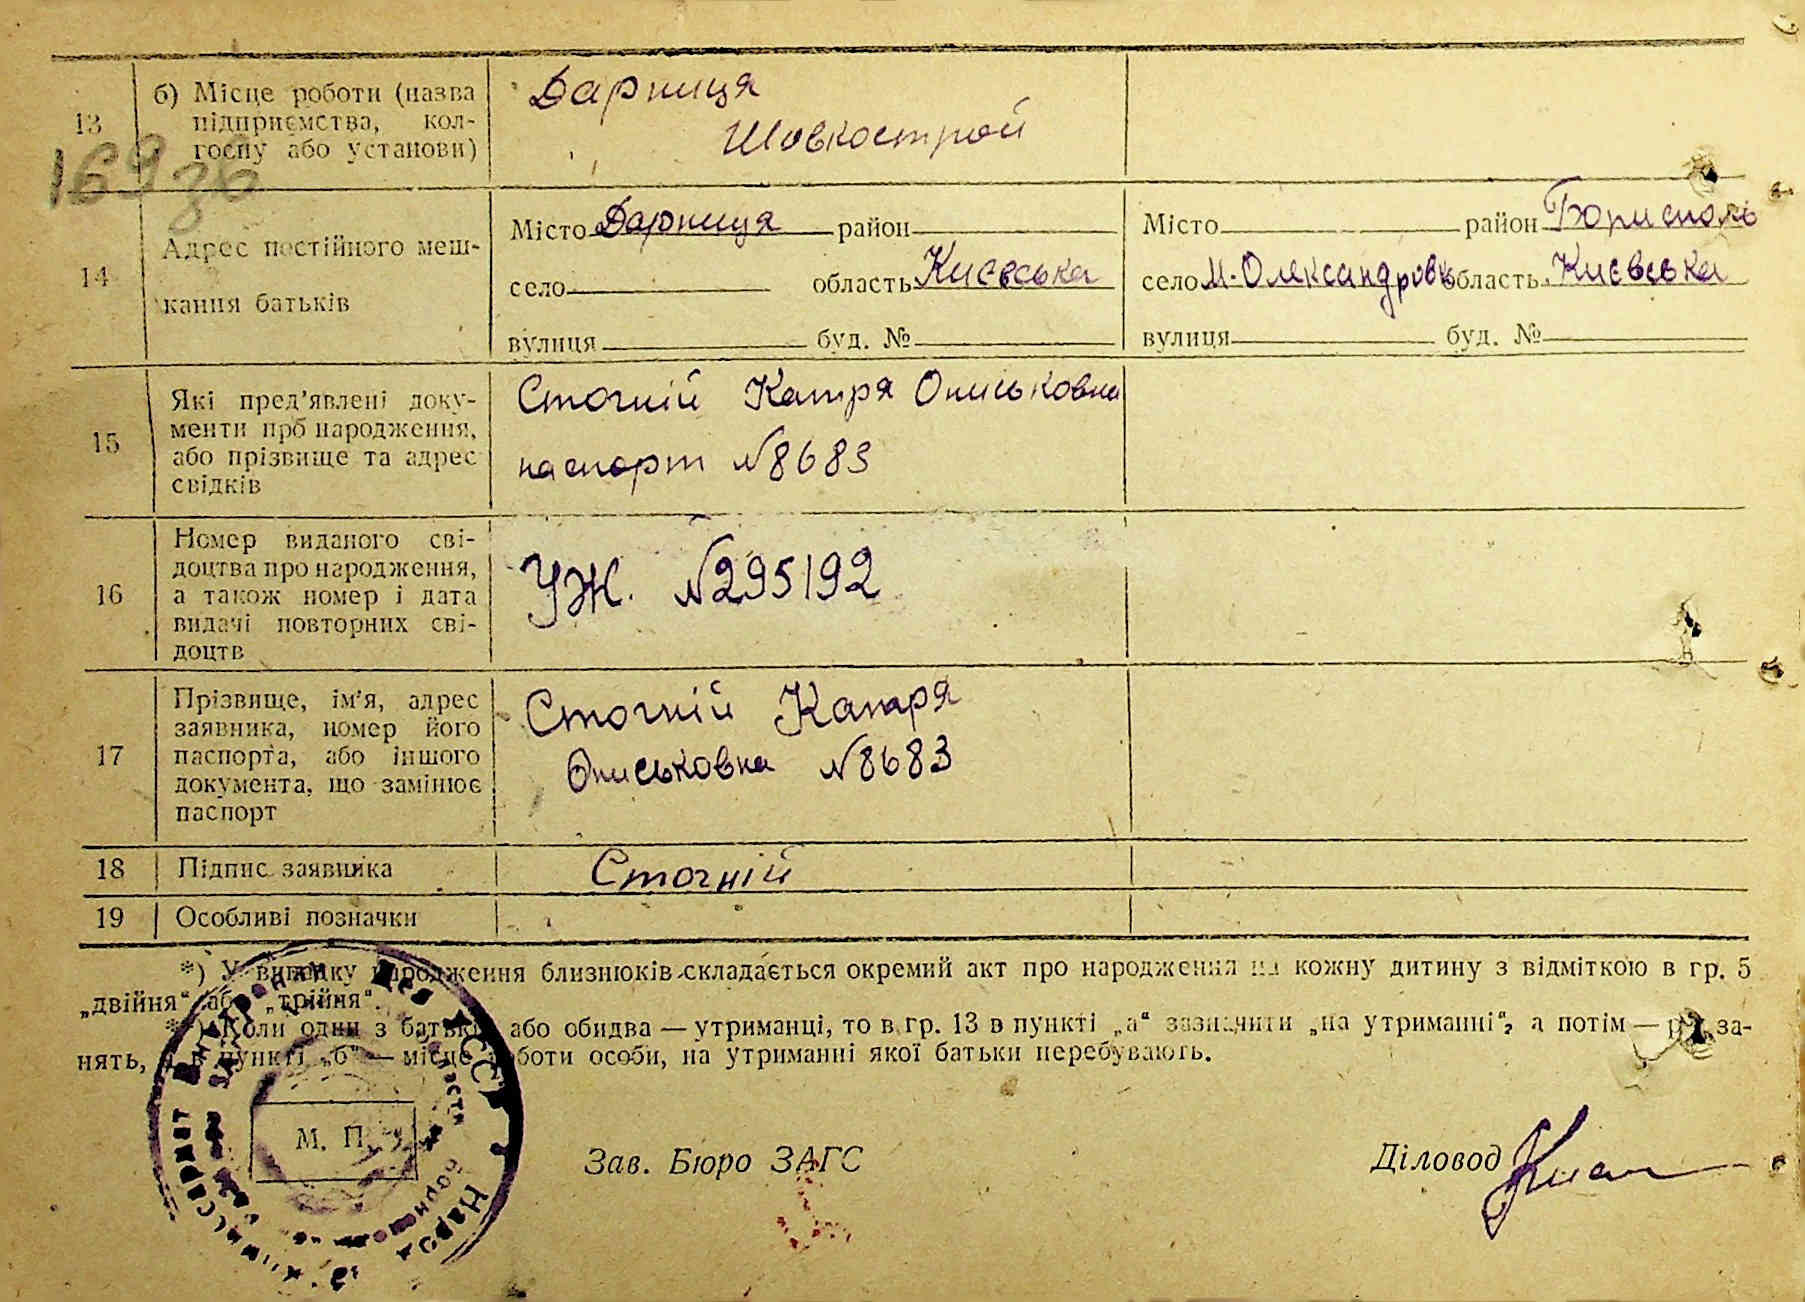 13
б) Місце роботи (назва
підприємства, кол-
госпу або установи)
Дарниця
Шовкострой
169 зв
14
Адрес постійного меш-
кання батьків
Місто Дарниця район
село область Києвська
вулиця буд. №
Місто район Бориспол
село М-Олександровк область Києвська
вулиця буд. №
15
Які пред'явлені доку-
менти прб народження,
або прізвище та адрес
свідків
Стогній Катря Ониськовна
паспорт №8683
16
Номер виданого сві-
доцтва про народження,
а також номер і дата
видачі повторних сві-
доцтв
УЖ. №295192
17
Прізвище, ім'я, адрес
заявника, номер його
паспорта, або іншого
документа, що замінює
паспорт
Стогній Катря
Ониськовна №8683
18
Підпис заявника
Стогній
19
Особливі позначки
*) У випадку народження близнюків складається окремий акт про народження на кожну дитину з відміткою в гр. 5
„двійня“ або „трійня“.
**) Коли один з батьків або обидва — утриманці, то в гр. 13 в пункті „а“ зазначити „на утриманні“, а потім — рід за-
нять, а в пункті „б“ — місце роботи особи, на утриманні якої батьки перебувають.
М. П.
Зав. Бюро ЗАГС
Діловод